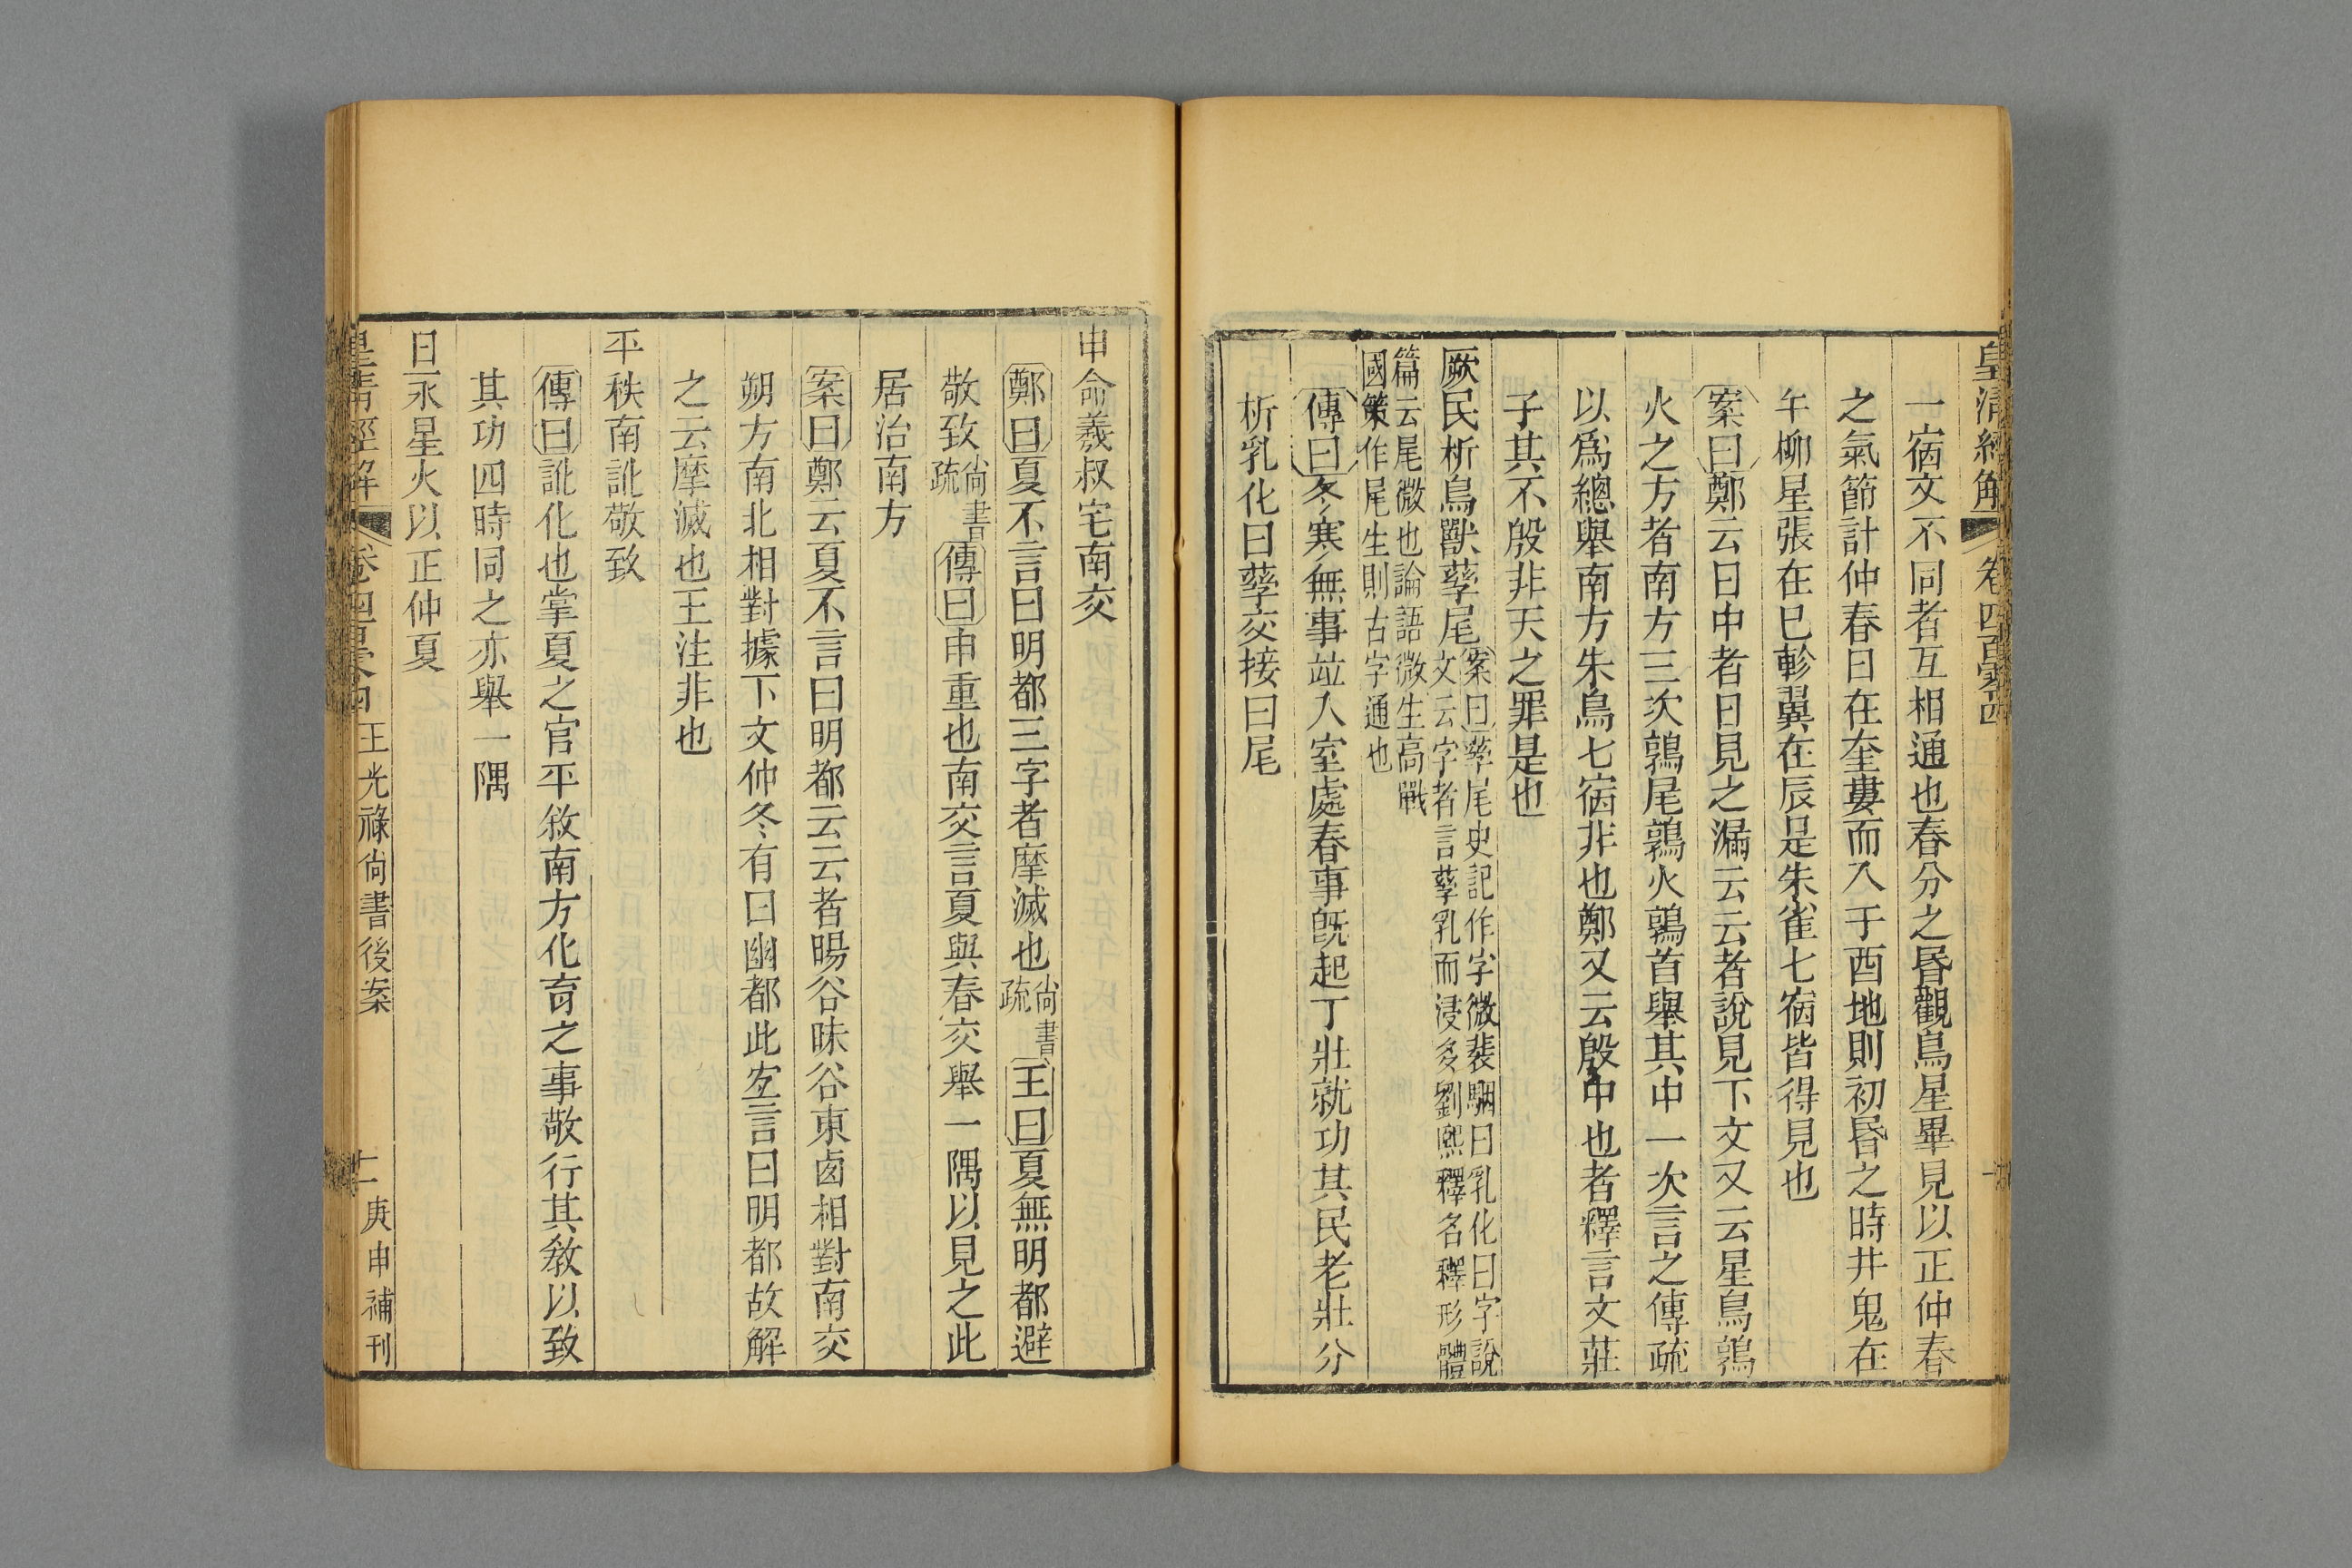 皇清經解 卷四百零四
一宿文不同者互相通也春分之昏觀鳥星畢見以正仲春
之氣節計仲春日在奎婁而入于酉地則初昏之時井鬼在
午柳星張在巳軫翼在辰是朱雀七宿皆得見也
案曰鄭云日中者日見之漏云云者說見下文又云星鳥鶉
火之方者南方三次鶉尾鶉火鶉首舉其中一次言之傳疏
以爲總舉南方朱鳥七宿非也鄭又云殷中也者釋言文莊
子其不殷非天之罪是也
厥民析鳥獸孳尾案曰孳尾史記作字微裴駰曰乳化曰字說
文云字者言孳乳而浸多劉熙釋名釋形體
篇云尾微也論語微生高戰
國策作尾生則古字通也
傳曰冬寒無事竝入室處春事旣起丁壯就功其民老壯分
析乳化曰孳交接曰尾
申命羲叔宅南交
鄭曰夏不言曰明都三字者摩滅也尙書疏王曰夏無明都避
敬致尙書疏傳曰申重也南交言夏與春交舉一隅以見之此
居治南方
案曰鄭云夏不言曰明都云云者暘谷昧谷東卤相對南交
朔方南北相對據下文仲冬有曰幽都此宐言曰明都故解
之云摩滅也王注非也
平秩南訛敬致
傳曰訛化也掌夏之官平敘南方化育之事敬行其敎以致
其功四時同之亦舉一隅
日永星火以正仲夏
皇清經解 卷四百零四 王光祿尙書後案 十一 庚申補刊